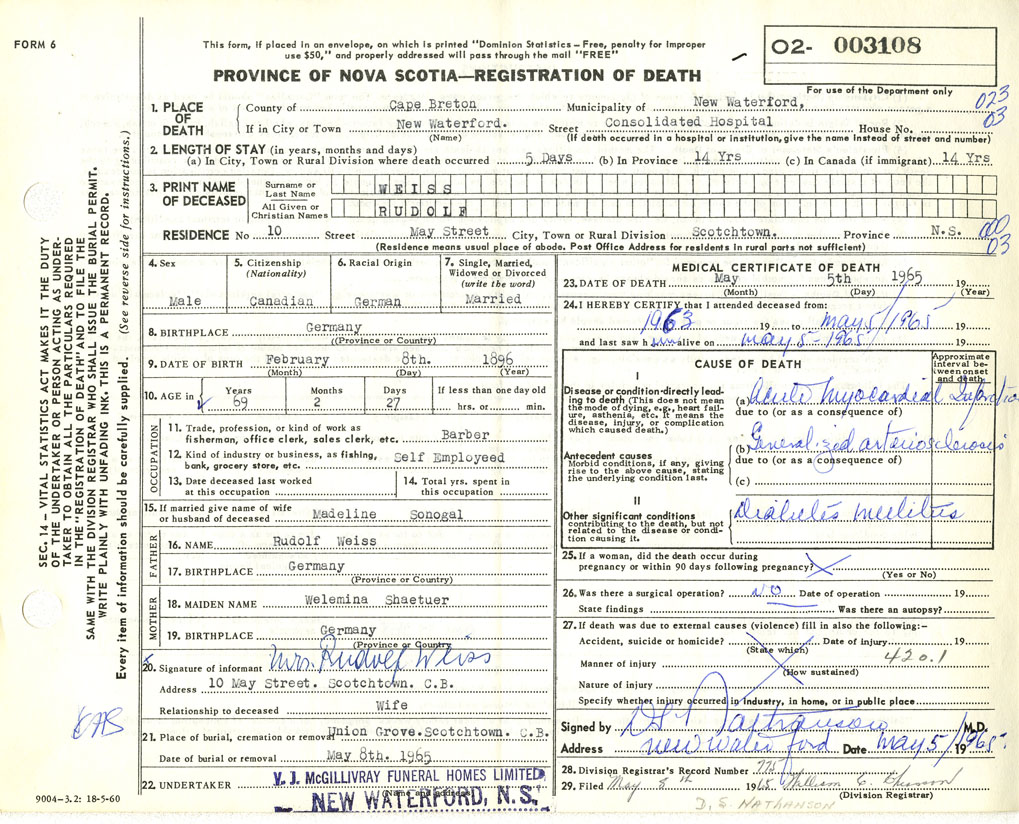 FORM 6
This form, if placed in an envelope, on which is printed "Dominion Statistics – Free, penalty for improper
use $50," and properly addressed will pass through the mail "FREE"
PROVINCE OF NOVA SCOTIA—REGISTRATION OF DEATH
02- 003108
For use of the Department only
023
03
1. PLACE OF DEATH
County of Cape Breton Municipality of New Waterford,
If in City or Town New Waterford. Street Consolidated Hospital House No.
(Name) (If death occurred in a hospital or institution, give the name instead of street and number)
2. LENGTH OF STAY (in years, months and days)
(a) In City, Town or Rural Division where death occurred 5 Days (b) In Province 14 Yrs (c) In Canada (if immigrant) 14 Yrs
3. PRINT NAME OF DECEASED
Surname or Last Name WEISS
All Given or Christian Names RUDOLF
RESIDENCE No 10 Street May Street City, Town or Rural Division Scotchtown. Province N.S.
(Residence means usual place of abode. Post Office Address for residents in rural parts not sufficient)
00
03
4. Sex Male
5. Citizenship (Nationality) Canadian
6. Racial Origin German
7. Single, Married, Widowed or Divorced (write the word) Married
8. BIRTHPLACE Germany
(Province or Country)
9. DATE OF BIRTH February 8th. 1896
(Month) (Day) (Year)
10. AGE in Years 69 Months 2 Days 27 If less than one day old hrs. or min.
OCCUPATION
11. Trade, profession, or kind of work as
fisherman, office clerk, sales clerk, etc. Barber
12. Kind of industry or business, as fishing,
bank, grocery store, etc. Self Employeed
13. Date deceased last worked
at this occupation
14. Total yrs. spent in
this occupation
15. If married give name of wife
or husband of deceased Madeline Sonogal
FATHER
16. NAME Rudolf Weiss
17. BIRTHPLACE Germany
(Province or Country)
MOTHER
18. MAIDEN NAME Welemina Shaetuer
19. BIRTHPLACE Germany
(Province or Country)
20. Signature of informant Mrs. Rudolf Weiss
Address 10 May Street. Scotchtown. C.B.
Relationship to deceased Wife
21. Place of burial, cremation or removal Union Grove. Scotchtown. C.B.
Date of burial or removal May 8th. 1965
22. UNDERTAKER V. J. McGILLIVRAY FUNERAL HOMES LIMITED
NEW WATERFORD, N.S.
9004–3.2: 18-5-60
MEDICAL CERTIFICATE OF DEATH
23. DATE OF DEATH May 5th 1965
(Month) (Day) (Year)
24. I HEREBY CERTIFY that I attended deceased from:
1963 19 to May 5/1965 19
and last saw him alive on May 5-1965 19
CAUSE OF DEATH
Approximate interval between onset and death
I
Disease or condition directly leading to death (This does not mean
the mode of dying, e.g., heart failure, asthenia, etc. It means the
disease, injury, or complication which caused death.)
(a) Acute Myocardial Infarction
due to (or as a consequence of)
Antecedent causes
Morbid conditions, if any, giving rise to the above cause, stating
the underlying condition last.
(b) Generalized arteriosclerosis
due to (or as a consequence of)
(c)
II
Other significant conditions
contributing to the death, but not related to the disease or condition causing it.
Diabetes Mellitus
25. If a woman, did the death occur during
pregnancy or within 90 days following pregnancy?
(Yes or No)
26. Was there a surgical operation? NO Date of operation 19
State findings Was there an autopsy?
27. If death was due to external causes (violence) fill in also the following:–
Accident, suicide or homicide? Date of injury 19
(State which)
420.1
Manner of injury
(How sustained)
Nature of injury
Specify whether injury occurred in industry, in home, or in public place
Signed by M.D.
Address New Waterford Date May 5/1965
28. Division Registrar's Record Number 775
29. Filed May 8th 1965 William
(Division Registrar)
D. S. NATHANSON
SEC. 14 – VITAL STATISTICS ACT MAKES IT THE DUTY
OF THE UNDERTAKER OR PERSON ACTING AS UNDER-
TAKER TO OBTAIN ALL THE PARTICULARS REQUIRED
IN THE "REGISTRATION OF DEATH" AND TO FILE THE
SAME WITH THE DIVISION REGISTRAR WHO SHALL ISSUE THE BURIAL PERMIT.
WRITE PLAINLY WITH UNFADING INK. THIS IS A PERMANENT RECORD.
Every item of information should be carefully supplied. (See reverse side for instructions.)